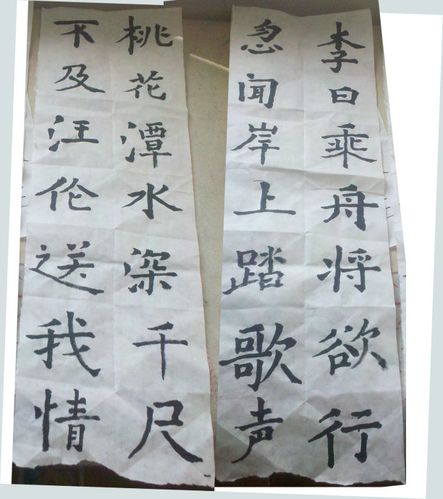 李日乘舟将欲行
忽闻岸上踏歌声
桃花潭水深千尺
不及汪伦送我情